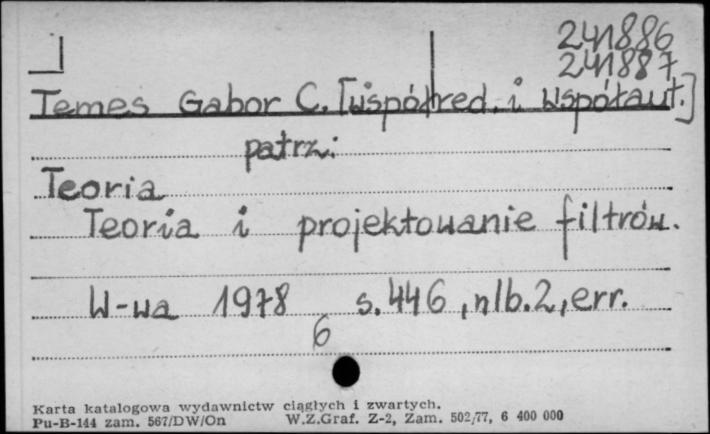 241886
241887
Temes Gabor C. [współred. i współaut.]
patrz:
Teoria
Teoria i projektowanie filtrów.
W-wa 1978 s. 446, nlb. 2, err.
6
Karta katalogowa wydawnictw ciągłych i zwartych.
Pu-B-144 zam. 567/DW/On W.Z.Graf. Z-2, Zam. 502/77, 6 400 000